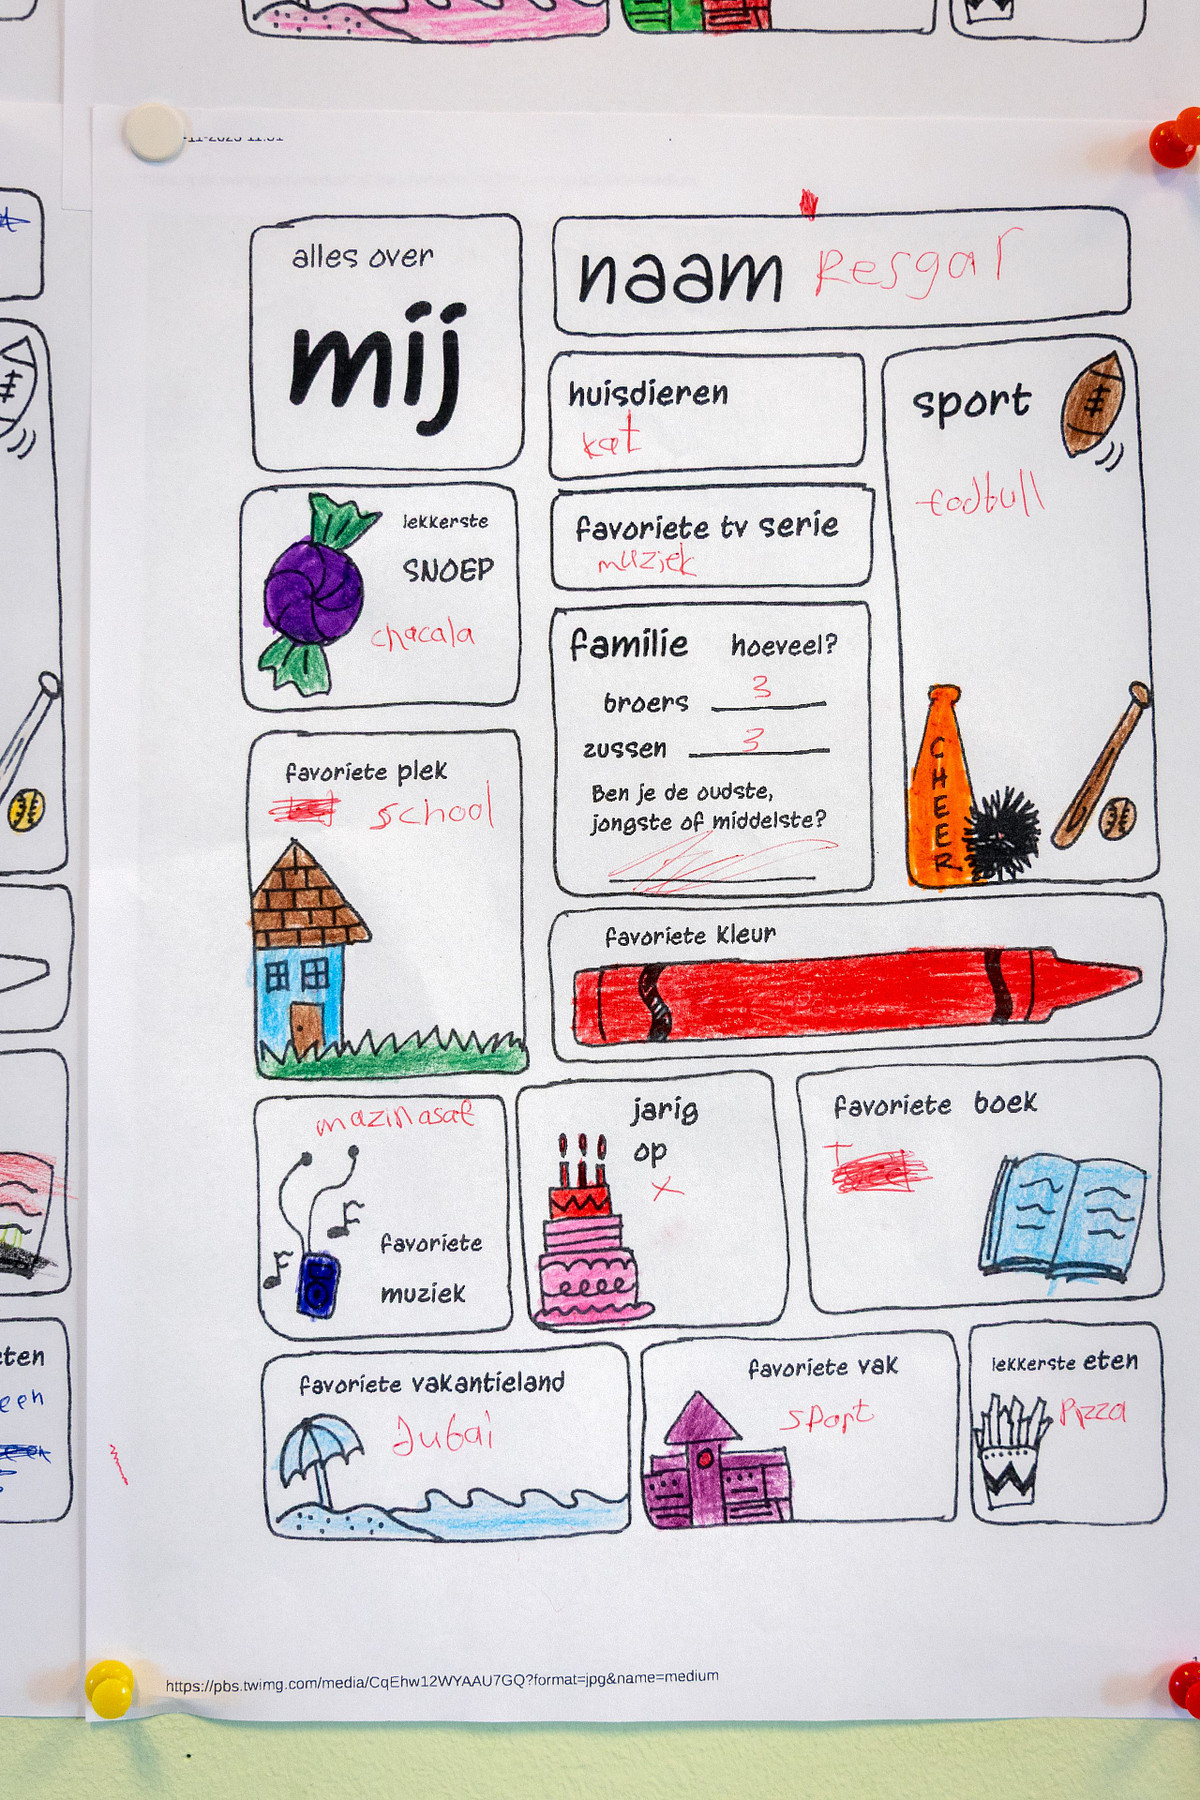 alles over
mij
naam Resgar
huisdieren
kat
sport
fodbull
CHEER
lekkerste
SNOEP
chacala
favoriete tv serie
muziek
familie hoeveel?
broers 3
zussen 3
Ben je de oudste,
jongste of middelste?
favoriete plek
school
favoriete kleur
mazinasae
favoriete
muziek
jarig
op
x
favoriete boek
favoriete vakantieland
Dubai
favoriete vak
sport
lekkerste eten
Pizza
https://pbs.twimg.com/media/CqEhw12WYAAU7GQ?format=jpg&name=medium
eten
een